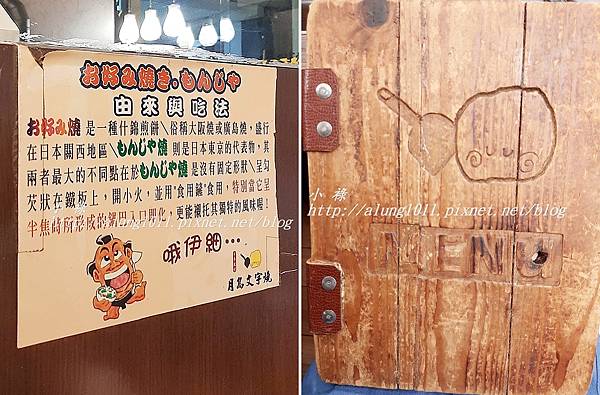 お好み焼き.もんじゃ
由來與吃法
お好み燒 是一種什錦煎餅╲俗稱大阪燒或廣島燒，盛行
在日本關西地區╲もんじゃ燒 則是日本東京的代表物，其
兩者最大的不同點在於もんじゃ燒 是沒有固定形狀╲呈勾
芡狀在鐵板上，開小火，並用"食用鏟"食用，特別當它呈
半焦時所形成的鍋巴入口即化，更能襯托其獨特的風味喔！
哦伊細...
月島文字燒
MENU
小祿
http://alung1011.pixnet.net/blog
http://alung1011.pixnet.net/blog